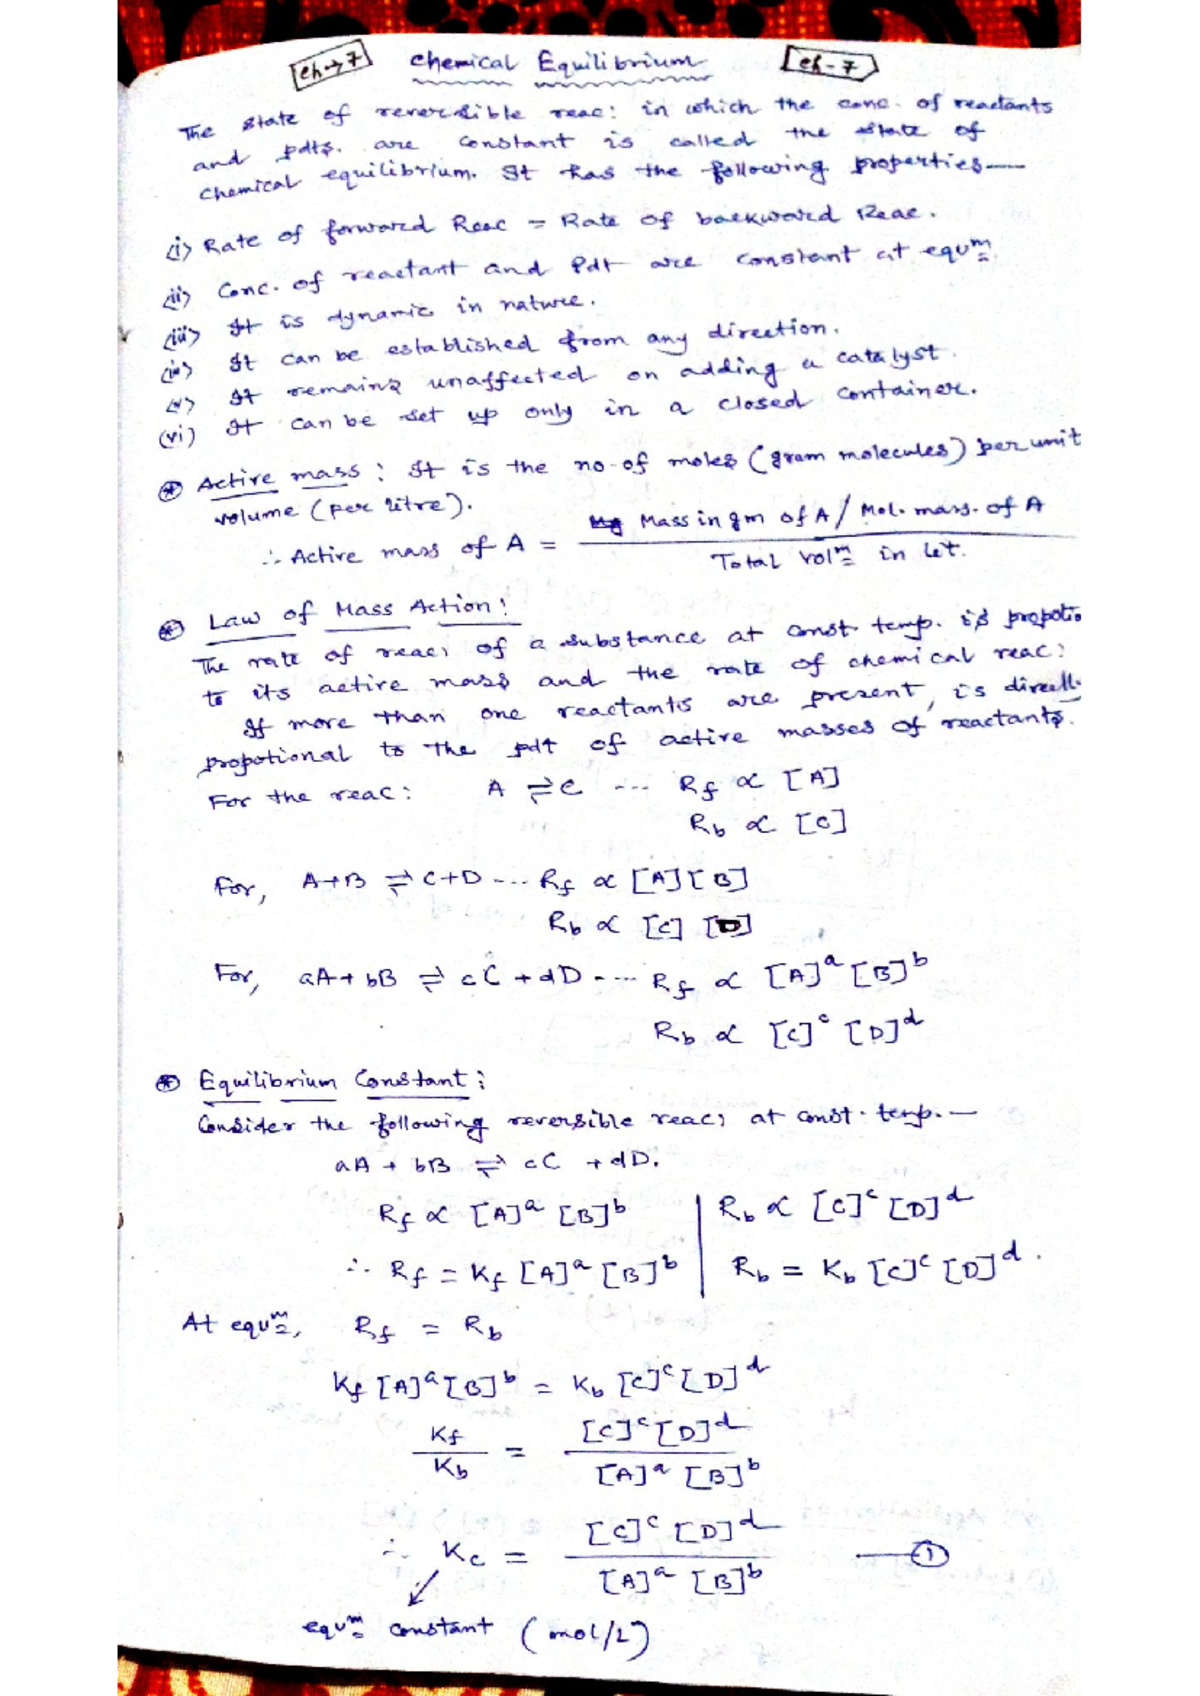 Ch→7 Chemical Equilibrium Ch-7
The state of reversible reac: in which the conc. of reactants
and pdts. are constant is called the state of
chemical equilibrium. It has the following properties—
(i) Rate of forward Reac = Rate of backward Reac.
(ii) Conc. of reactant and Pdt are constant at equm.
(iii) It is dynamic in nature.
(iv) It can be established from any direction.
(v) It remains unaffected on adding a catalyst.
(vi) It can be set up only in a closed container.
⊛ Active mass : It is the no. of moles (gram molecules) per unit
volume (per litre).
∴ Active mass of A = Mass in gm of A / Mol. mass. of A
Total volm in let.
⊛ Law of Mass Action :
The rate of reac: of a substance at const temp. is propotio
to its active mass and the rate of chemical reac:
If more than one reactants are present, is directl
propotional to the pdt of active masses of reactants.
For the reac: A ⇌ C ... Rf ∝ [A]
Rb ∝ [C]
For, A+B ⇌ C+D ... Rf ∝ [A][B]
Rb ∝ [C] [D]
For, aA + bB ⇌ cC + dD ... Rf ∝ [A]^a [B]^b
Rb ∝ [C]^c [D]^d
⊛ Equilibrium Constant :
Consider the following reversible reac: at const. temp. —
aA + bB ⇌ cC + dD.
Rf ∝ [A]^a [B]^b | Rb ∝ [C]^c [D]^d
∴ Rf = Kf [A]^a [B]^b | Rb = Kb [C]^c [D]^d.
At equm, Rf = Rb
Kf [A]^a [B]^b = Kb [C]^c [D]^d
Kf = [C]^c [D]^d
Kb [A]^a [B]^b
∴ Kc = [C]^c [D]^d —①
[A]^a [B]^b
equm constant (mol/L)